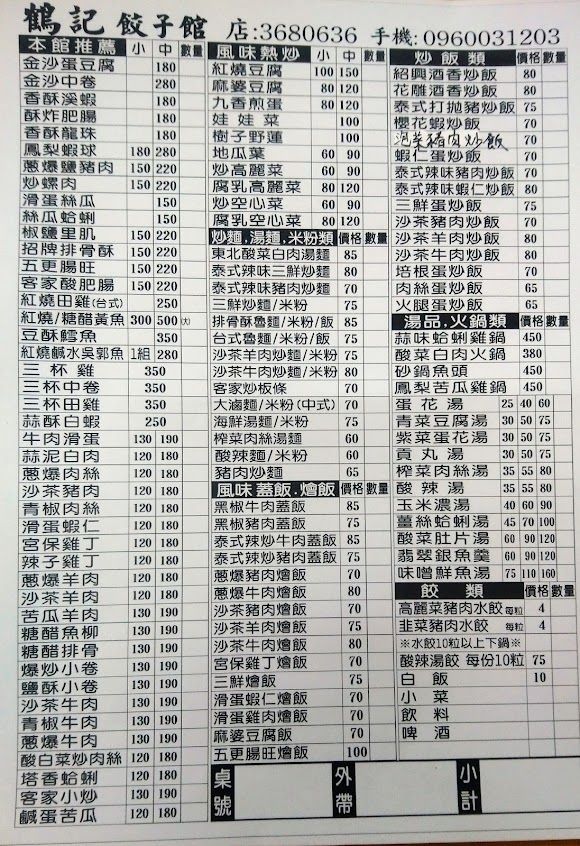 鶴記 餃子館 店:3680636 手機:0960031203
本館推薦 小 中 數量
金沙蛋豆腐 180
金沙中卷 280
香酥溪蝦 180
酥炸肥腸 180
香酥龍珠 180
鳳梨蝦球 180 280
蔥爆鹽豬肉 150 220
炒螺肉 150 220
滑蛋絲瓜 150
絲瓜蛤蜊 150
椒鹽里肌 150 220
招牌排骨酥 150 220
五更腸旺 150 220
客家酸肥腸 150 220
紅燒田雞(台式) 250
紅燒/糖醋黃魚 300 500 (大)
豆酥鱈魚 350
紅燒鹹水吳郭魚 1組 280
三杯雞 350
三杯中卷 350
三杯田雞 350
蒜酥白蝦 250
牛肉滑蛋 130 190
蒜泥白肉 120 180
蔥爆肉絲 120 180
沙茶豬肉 120 180
青椒肉絲 120 180
滑蛋蝦仁 120 180
宮保雞丁 120 180
辣子雞丁 120 180
蔥爆羊肉 120 180
沙茶羊肉 120 180
苦瓜羊肉 130 190
糖醋魚柳 130 190
糖醋排骨 130 190
爆炒小卷 130 190
鹽酥小卷 130 190
沙茶牛肉 130 190
青椒牛肉 130 190
蔥爆牛肉 130 190
酸白菜炒肉絲 120 180
塔香蛤蜊 120 180
客家小炒 130 190
鹹蛋苦瓜 120 180
風味熱炒 小 中 數量
紅燒豆腐 100 150
麻婆豆腐 80 120
九香煎蛋 80 120
娃娃菜 100
樹子野蓮 100
地瓜葉 60 90
炒高麗菜 60 90
腐乳高麗菜 80 120
炒空心菜 60 90
腐乳空心菜 80 120
炒麵.湯麵.米粉類 價格 數量
東北酸菜白肉湯麵 85
泰式辣味三鮮炒麵 80
泰式辣味豬肉炒麵 70
三鮮炒麵/米粉 75
排骨酥魯麵/米粉/飯 85
台式魯麵/米粉/飯 75
沙茶羊肉炒麵/米粉 75
沙茶牛肉炒麵/米粉 75
客家炒板條 70
大滷麵/米粉(中式) 70
海鮮湯麵/米粉 75
榨菜肉絲湯麵 60
酸辣麵/米粉 60
豬肉炒麵 65
風味蓋飯.燴飯 價格 數量
黑椒牛肉蓋飯 85
黑椒豬肉蓋飯 75
泰式辣炒牛肉蓋飯 85
泰式辣炒豬肉蓋飯 75
蔥爆豬肉燴飯 70
蔥爆牛肉燴飯 80
沙茶豬肉燴飯 70
沙茶羊肉燴飯 80
沙茶牛肉燴飯 80
宮保雞丁燴飯 70
三鮮燴飯 75
滑蛋蝦仁燴飯 70
滑蛋雞肉燴飯 70
麻婆豆腐飯 70
五更腸旺燴飯 100
炒飯類 價格 數量
紹興酒香炒飯 80
花雕酒香炒飯 80
泰式打拋豬炒飯 75
櫻花蝦炒飯 70
泡菜豬肉炒飯 70
蝦仁蛋炒飯 70
泰式辣味豬肉炒飯 70
泰式辣味蝦仁炒飯 80
三鮮蛋炒飯 75
沙茶豬肉炒飯 70
沙茶羊肉炒飯 80
沙茶牛肉炒飯 80
培根蛋炒飯 70
肉絲蛋炒飯 65
火腿蛋炒飯 65
湯品.火鍋類 價格 數量
蒜味蛤蜊雞鍋 450
酸菜白肉火鍋 380
砂鍋魚頭 450
鳳梨苦瓜雞鍋 450
蛋花湯 25 40 60
青菜豆腐湯 30 50 75
紫菜蛋花湯 30 50 75
貢丸湯 30 50 75
榨菜肉絲湯 35 55 80
酸辣湯 35 55 80
玉米濃湯 40 60 90
薑絲蛤蜊湯 45 70 100
酸菜肚片湯 60 90 120
翡翠銀魚羹 60 90 120
味噌鮮魚湯 75 110 160
餃類 價格 數量
高麗菜豬肉水餃 每粒 4
韭菜豬肉水餃 每粒 4
※水餃10粒以上下鍋※
酸辣湯餃 每份10粒 75
白飯 10
小菜
飲料
啤酒
桌號 外帶 小計